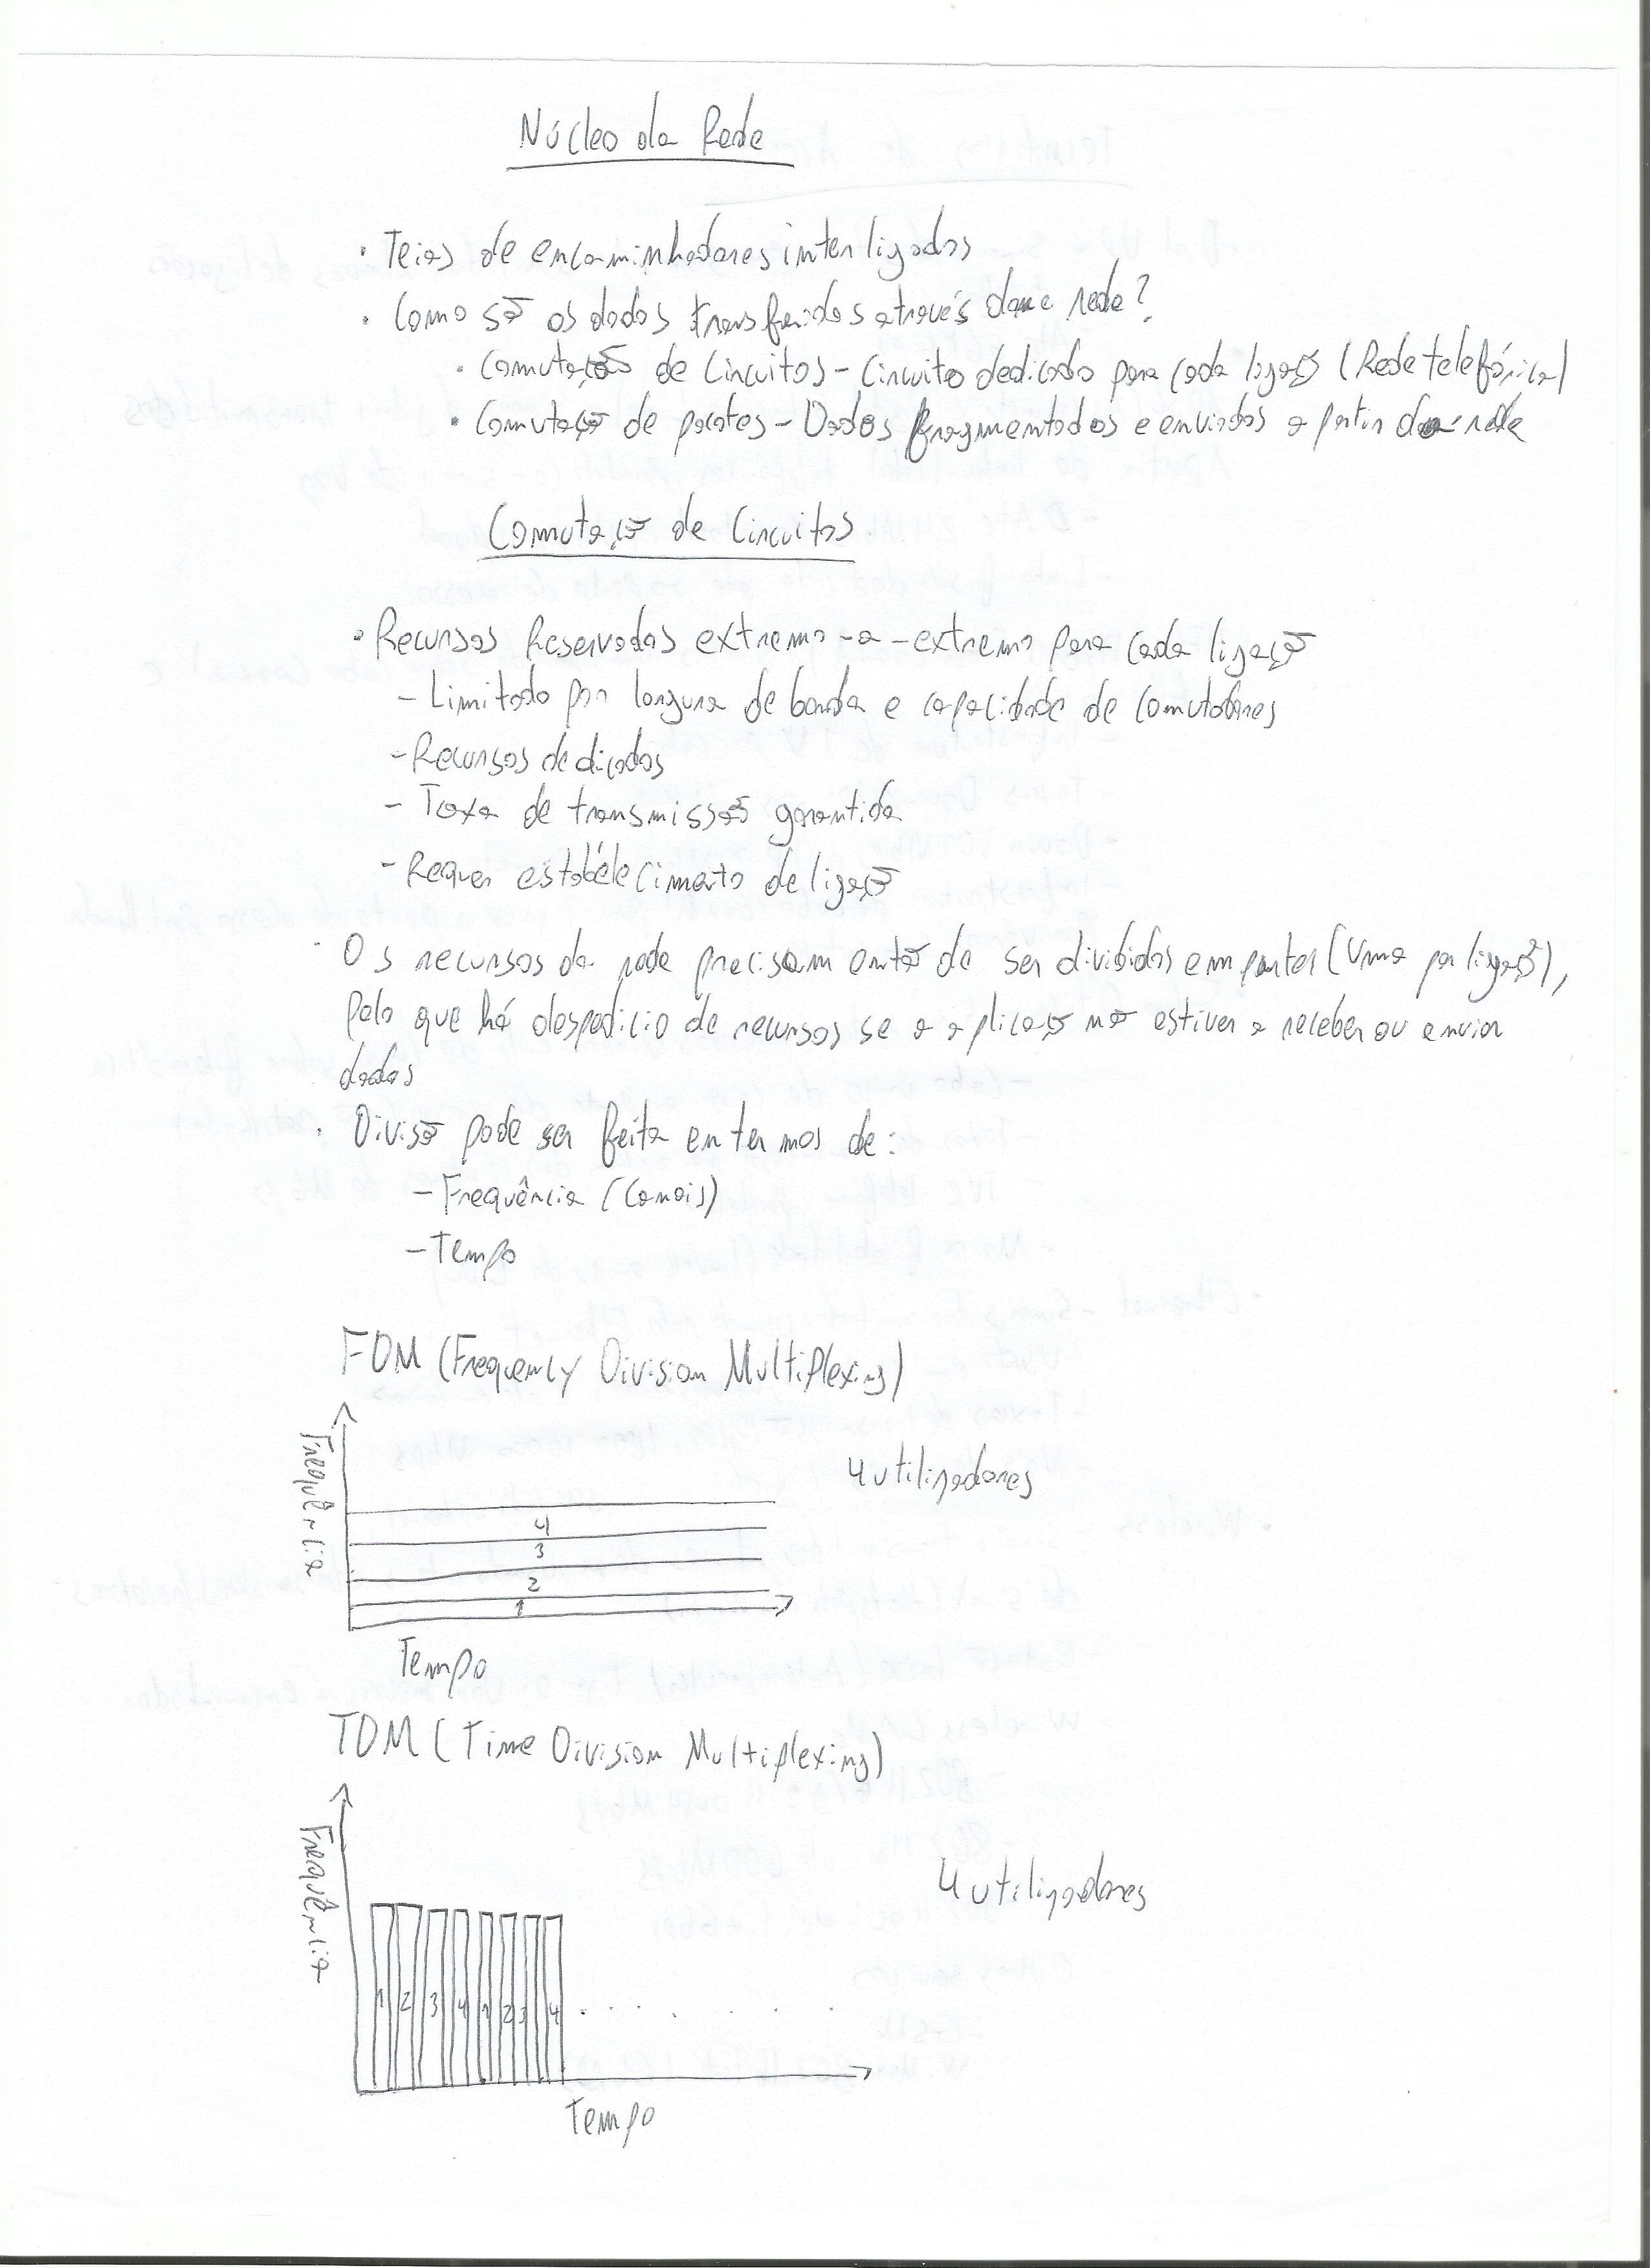 Núcleo da Rede
• Teias de encaminhadores interligados
• Como são os dados transferidos através da rede?
• Comutação de Circuitos - Circuito dedicado para cada ligação (Rede telefónica)
• Comutação de pacotes - Dados fragmentados e enviados a partir da rede
Comutação de Circuitos
• Recursos Reservados extremo-a-extremo para cada ligação
- Limitado por largura de banda e capacidade de comutadores
- Recursos dedicados
- Taxa de transmissão garantida
- Requer estabelecimento de ligação
• Os recursos da rede precisam então de ser divididos em partes (Uma por ligação),
pelo que há despedicio de recursos se a aplicação não estiver a receber ou enviar
dados
• Divisão pode ser feita em termos de:
- Frequência (Canais)
- Tempo
FDM (Frequency Division Multiplexing)
Frequência
4 utilizadores
4
3
2
1
Tempo
TDM (Time Division Multiplexing)
Frequência
4 utilizadores
1 2 3 4 1 2 3 4 . . . . . .
Tempo